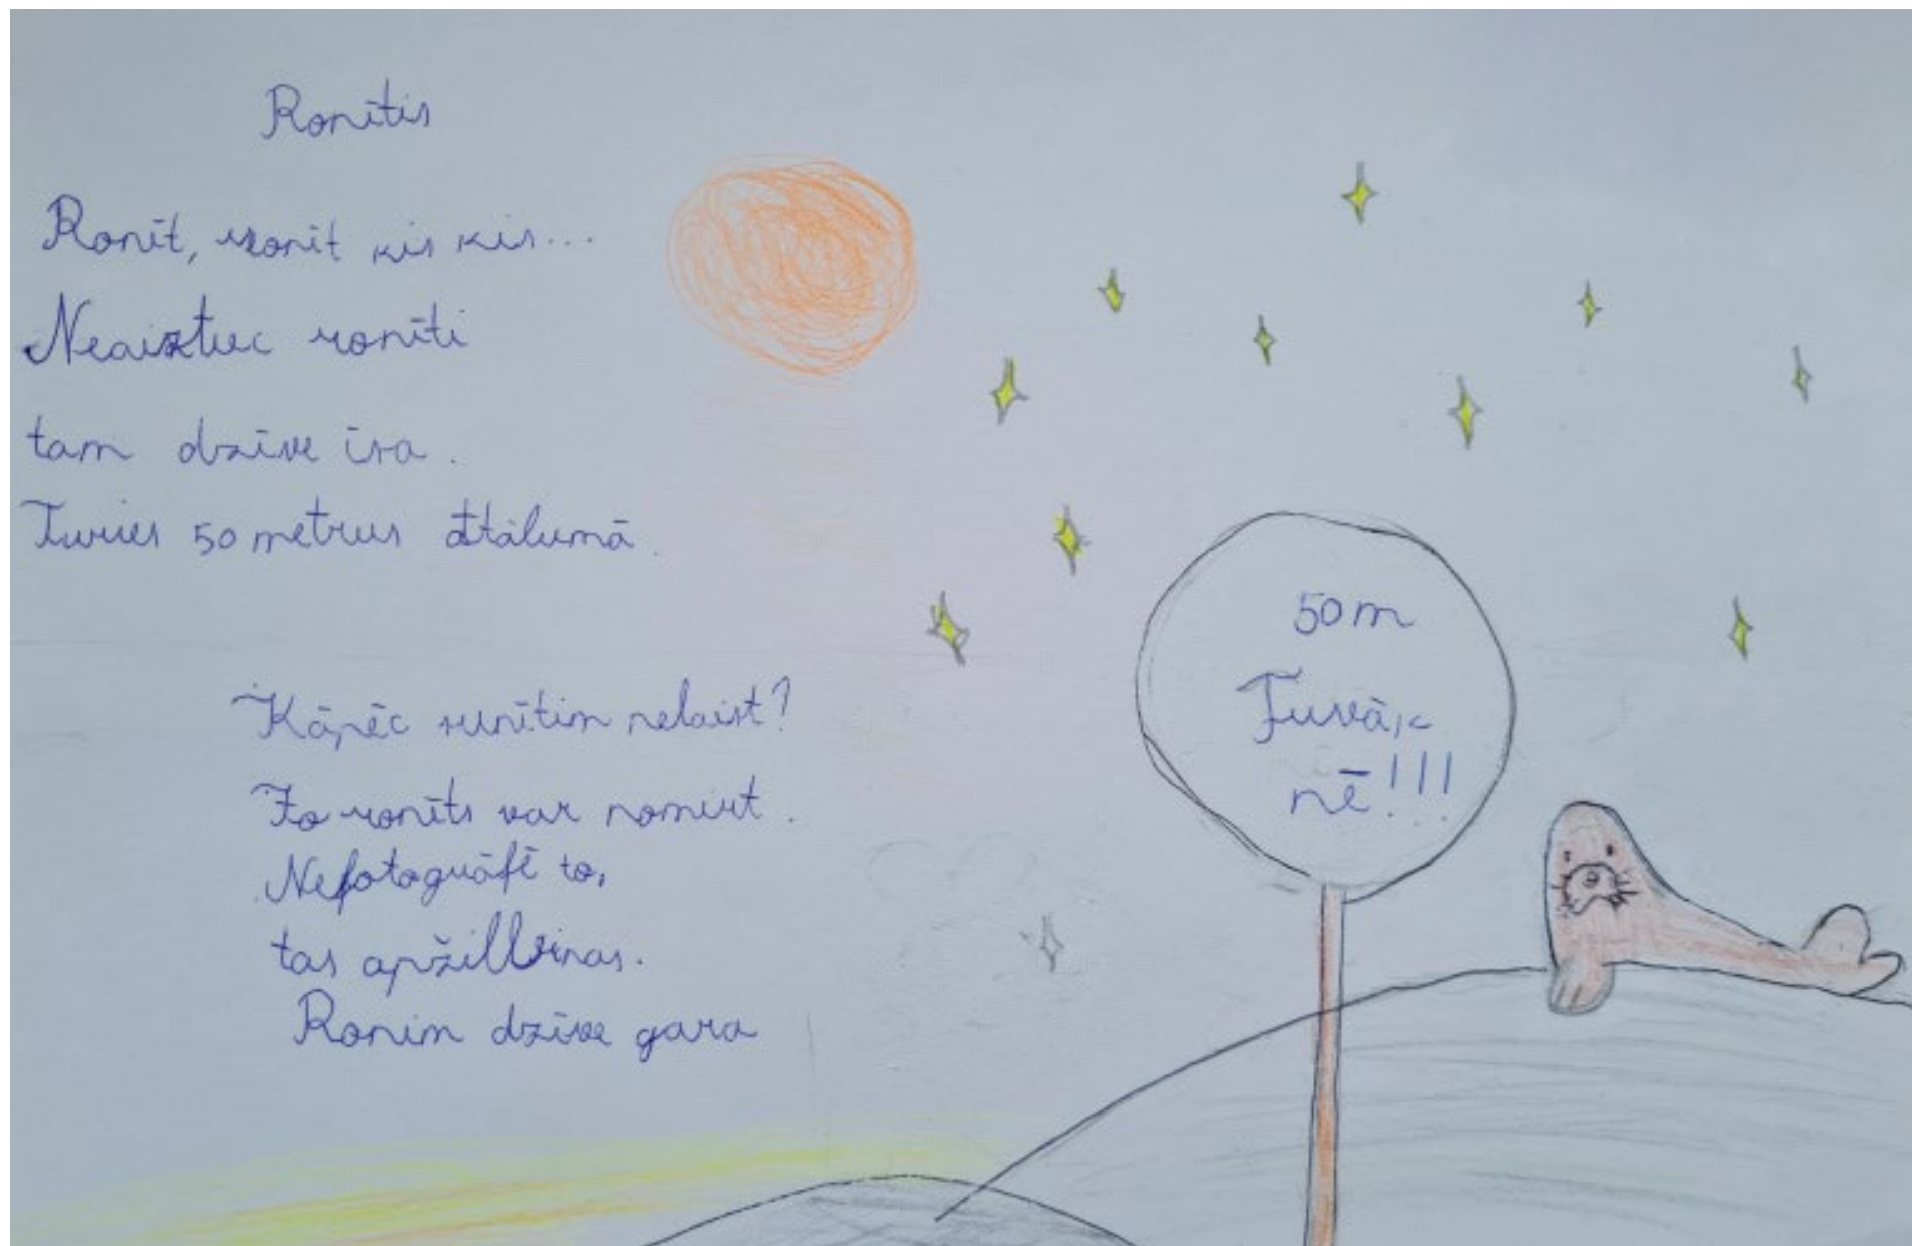 Ronītis
Ronīt, ronīt kis kis...
Neaiztiec ronīti
tam dzīve īsa.
Turies 50 metrus attālumā.
Kāpēc runītim nelaist?
Jo ronīts var nomirt.
Nefotografē to,
tas apžilbinas.
Ronim dzīve gara
50m
Tuvāk
nē!!!